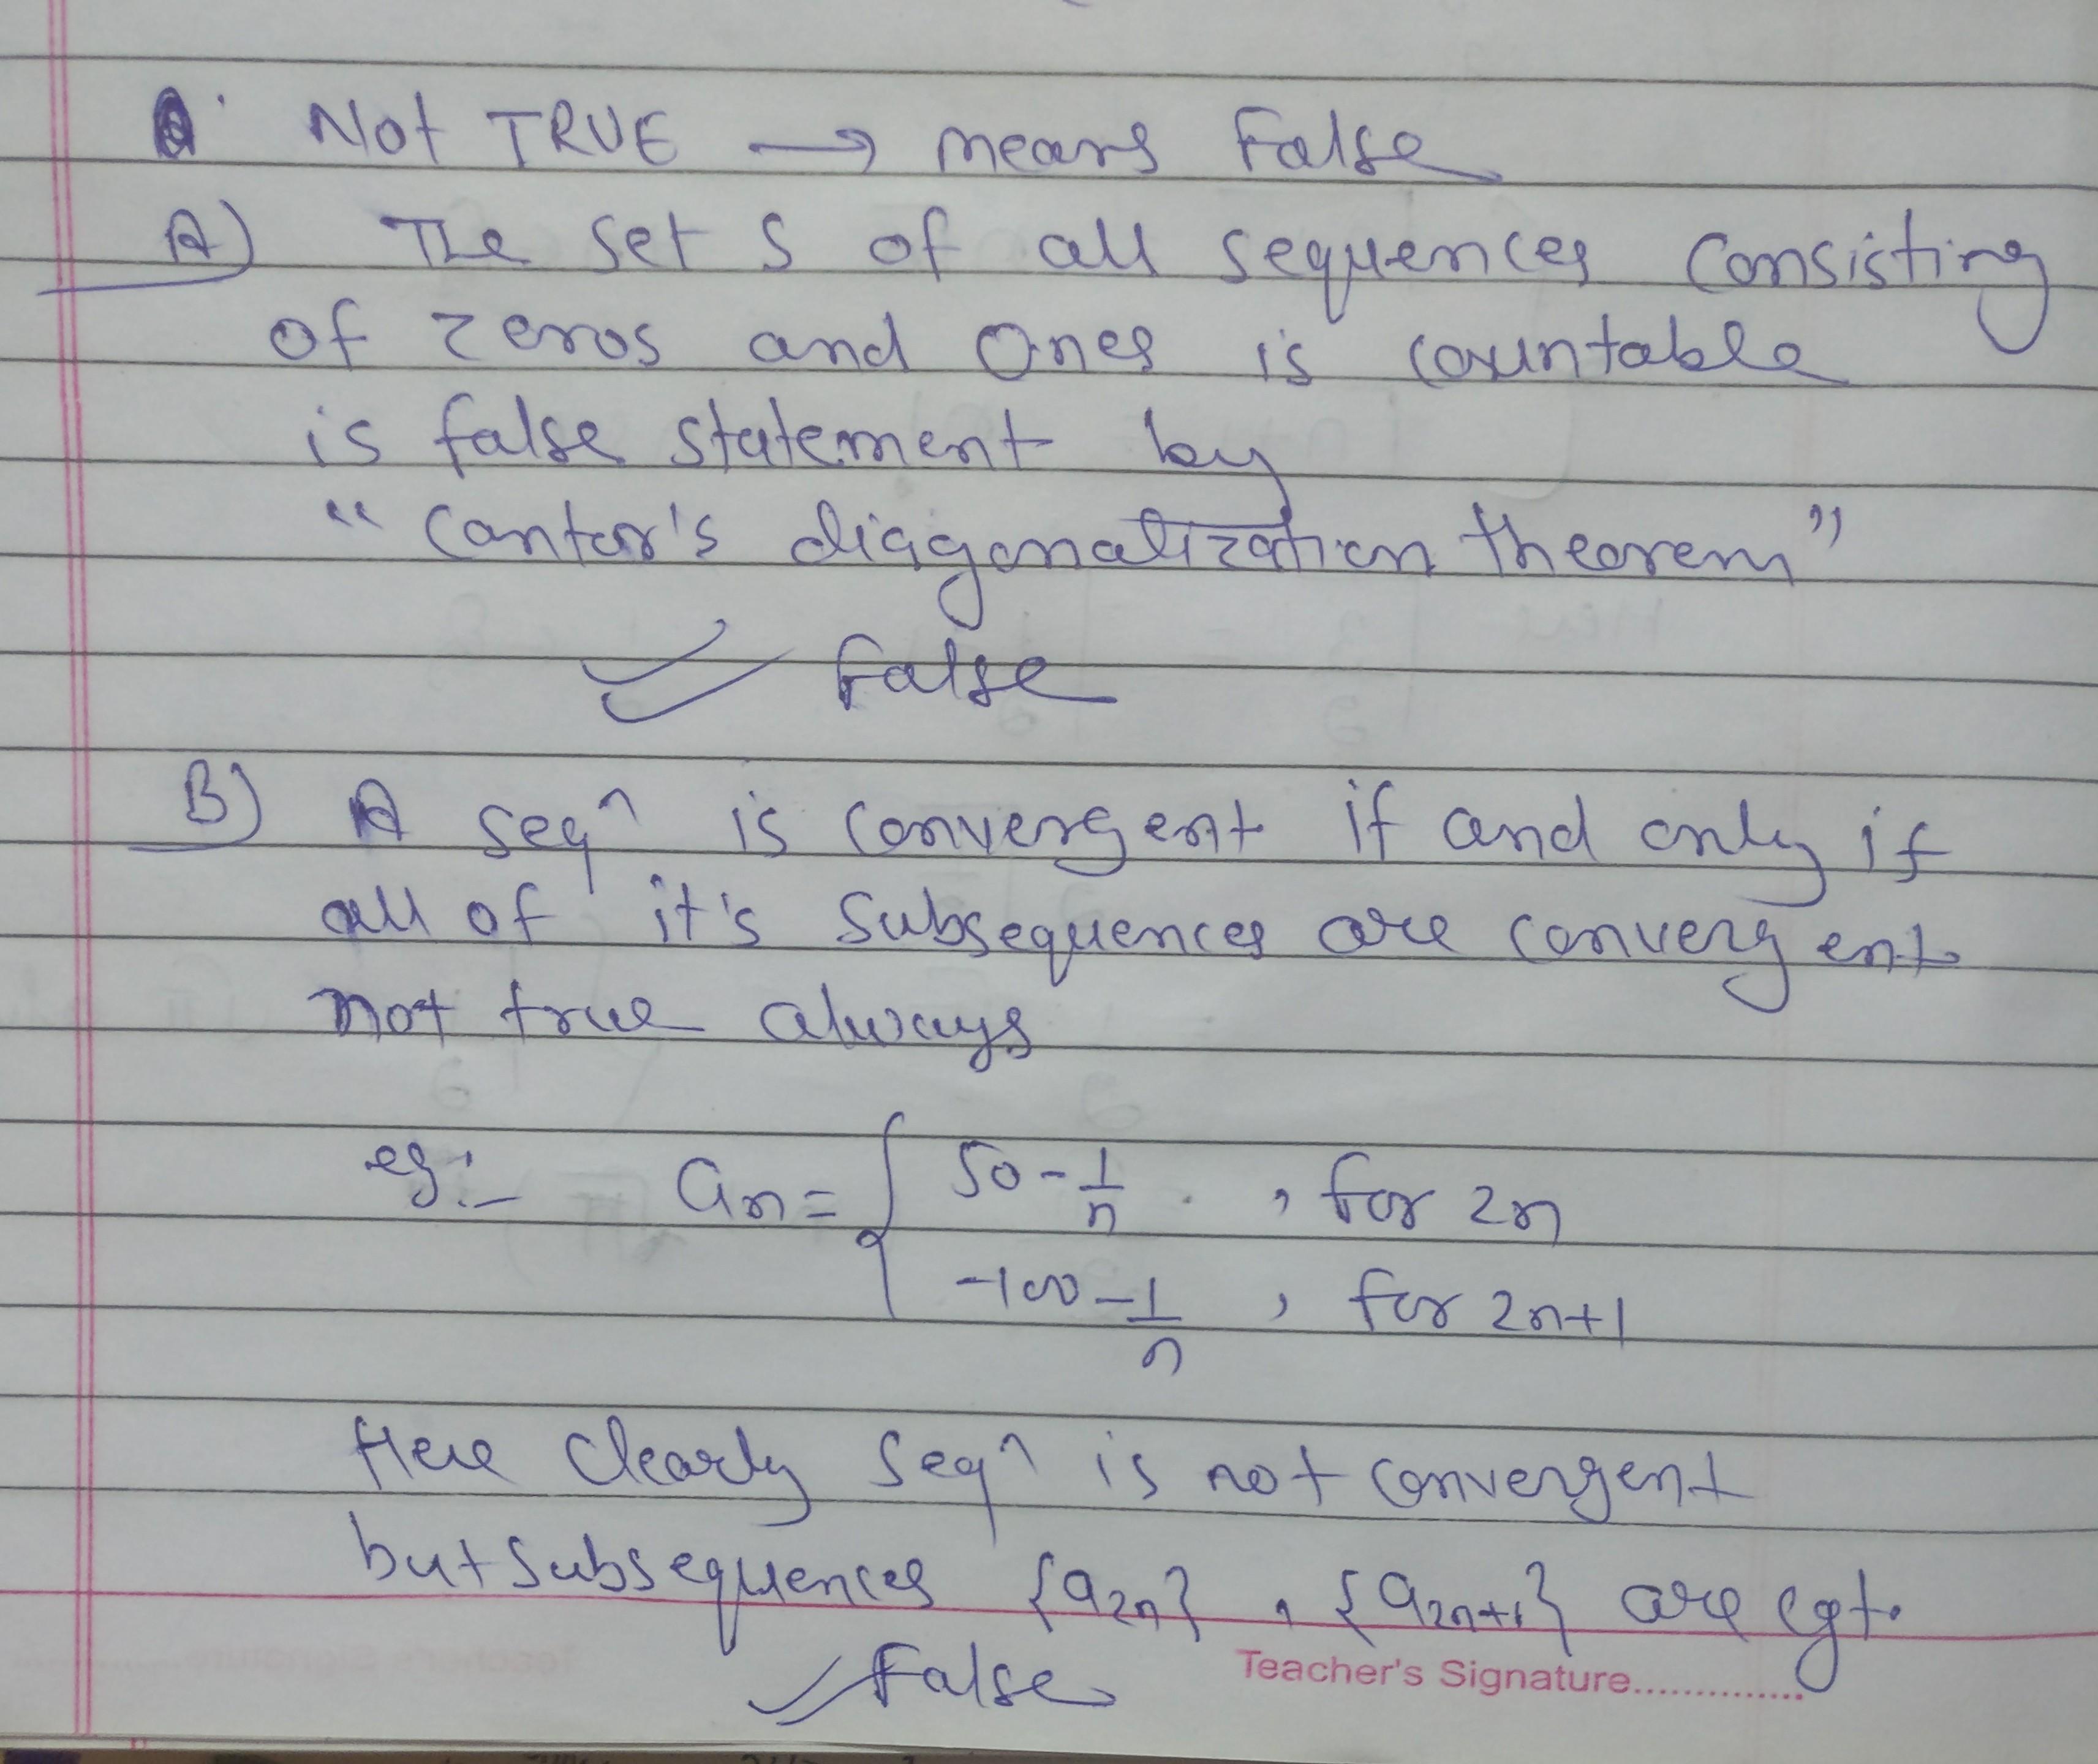 Q. Not TRUE → means False
A) The set S of all sequences consisting
of zeros and ones is countable
is false statement by
“Cantor's diagonalization theorem”
False
B) A seqⁿ is convergent if and only if
all of it's subsequences are convergent
not true always
eg:- aₙ = { 50 - 1/n , for 2n
-100 - 1/n , for 2n+1
Here clearly seqⁿ is not convergent
but subsequences {a₂ₙ} , {a₂ₙ₊₁} are cgt.
False
Teacher's Signature..............